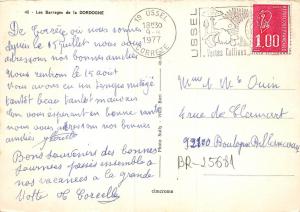 46 - Les Barrages de la DORDOGNE
De Corrèze où nous sommes
depuis le 15 juillet nous vous
adressons nos bonnes amitiés
Nous rentrons le 15 aout
Nous avons eu un temps mitigé
tantôt beau tantôt mauvais
vous en bonne santé nous
vous adressons nos bonnes
amitiés
Bons souvenirs des bonnes
journées passées ensemble à
nous vacances à la grande
Motte
19 USSEL
18H30
1977
CORREZE
USSEL
Toutes Cultures
1.00
M. & Mme Ouin
4 rue de Clamart
92100 Boulogne Billancourt
BR-25681
cimcrome